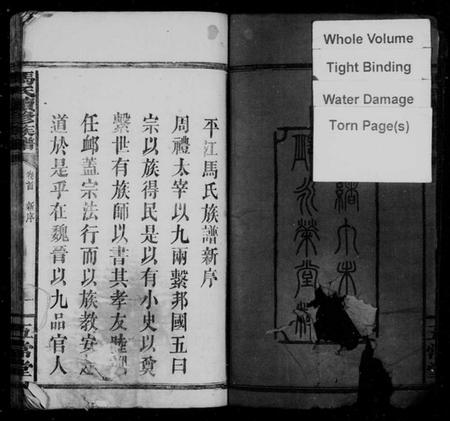 Whole Volume
Tight Binding
Water Damage
Torn Page(s)
平江馬氏族譜新序
周禮太宰以九兩繫邦國五曰
宗以族得民是以有小史以奠
繫世有族師以書其孝友睦婣
任卹蓋宗法行而以族教安之
道於是乎在魏晉以九品官人
馬氏續修族譜
卷首 新序
五常堂